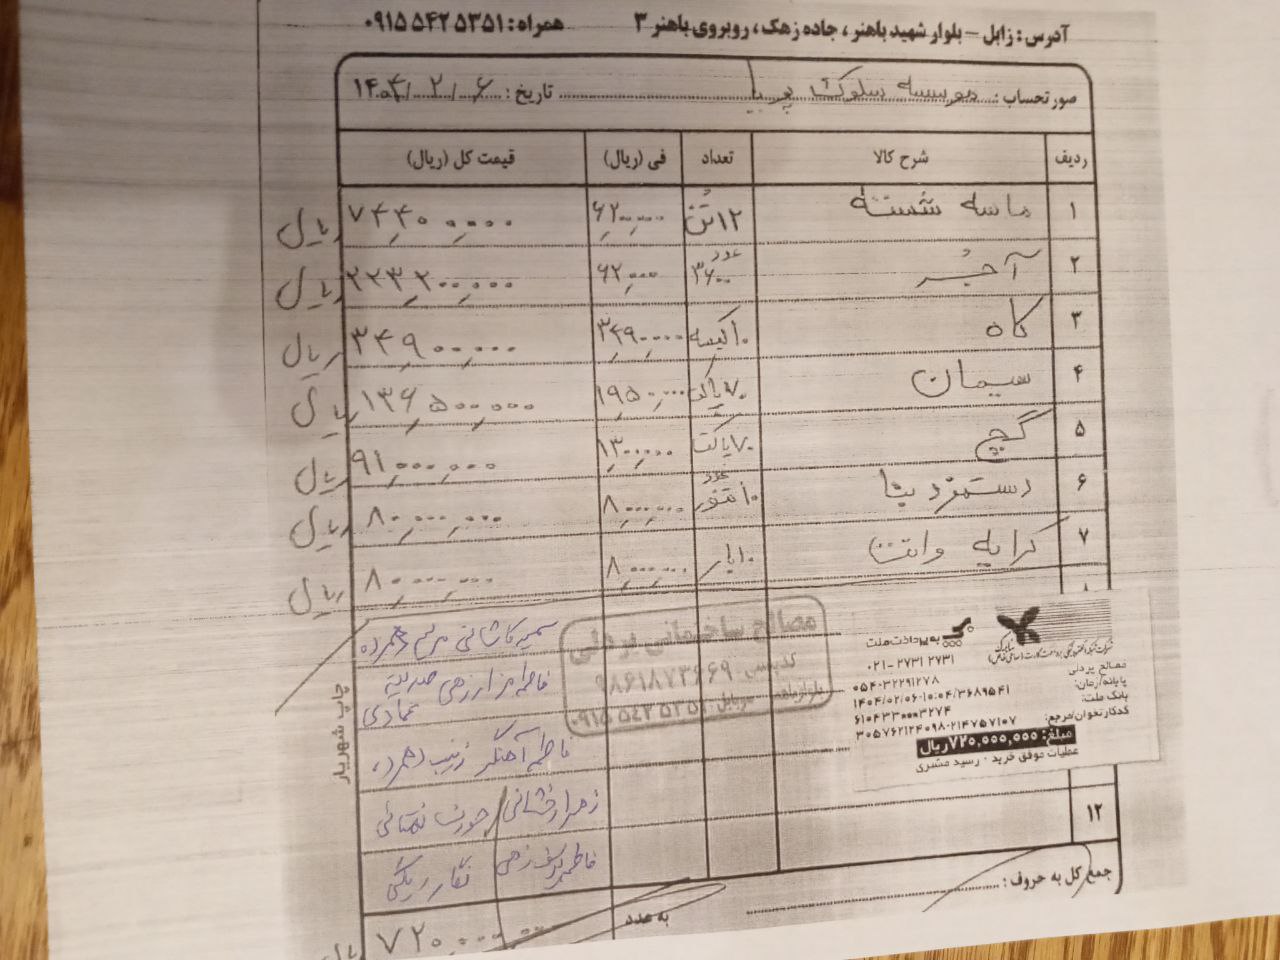 آدرس: زابل - بلوار شهید باهنر، جاده زهک، روبروی باهنر ۳ همراه: ۰۹۱۵۵۴۲۵۳۵۱
صورتحساب: موسسه سلوک تاریخ: ۱۴۰۴/۲/۶
ردیف شرح کالا تعداد فی (ریال) قیمت کل (ریال)
۱ ماسه شسته ۱۲ تُن ۶,۲۰۰,۰۰۰ ۷۴,۴۰۰,۰۰۰ ریال
۲ آجُر ۳۶۰۰ عدد ۶۲,۰۰۰ ۲۲۳,۲۰۰,۰۰۰ ریال
۳ کاه ۱۰ کیسه ۳,۴۹۰,۰۰۰ ۳۴,۹۰۰,۰۰۰ ریال
۴ سیمان ۷۰ پاکت ۱,۹۵۰,۰۰۰ ۱۳۶,۵۰۰,۰۰۰ ریال
۵ گچ ۷۰ پاکت ۱,۳۰۰,۰۰۰ ۹۱,۰۰۰,۰۰۰ ریال
۶ دستمزد بنا ۱۰ عدد ۸,۰۰۰,۰۰۰ ۸۰,۰۰۰,۰۰۰ ریال
۷ کرایه وانت ۱۰ بار ۸,۰۰۰,۰۰۰ ۸۰,۰۰۰,۰۰۰ ریال
۸
سمیرکاشانی مریم دهمرده
فاطمه میزارزهی صدریه عمادی
فاطمه آهنگر زینب دهمرده
زهرا رخشانی
فاطمه یوسف زهی نگار ریگی
مصالح ساختمانی پردلی
کدپستی ۹۸۶۱۸۷۳۶۶۹
موبایل ۰۹۱۵۵۴۲۵۳۵۱
به پرداخت ملت
۰۲۱-۲۷۳۱۲۷۳۱
مصالح پردلی ۰۵۴-۳۲۲۹۱۲۷۸
پایانه/زمان: ۱۴۰۴/۰۲/۰۶-۱۰:۰۴/۳۶۸۹۵۴۱
بانک ملت: ۶۱۰۴۳۳***۳۲۷۴
کدکارتخوان/مرجع: ۳۰۵۷۶۲۱۲۴۰۹۸-۲۱۴۷۵۷۱۰۷
مبلغ: ۷۲۰,۰۰۰,۰۰۰ ریال
عملیات موفق خرید - رسید مشتری
چاپ شهریار
۱۲
جمع کل به حروف:
به عدد ۷۲۰,۰۰۰,۰۰۰ ریال